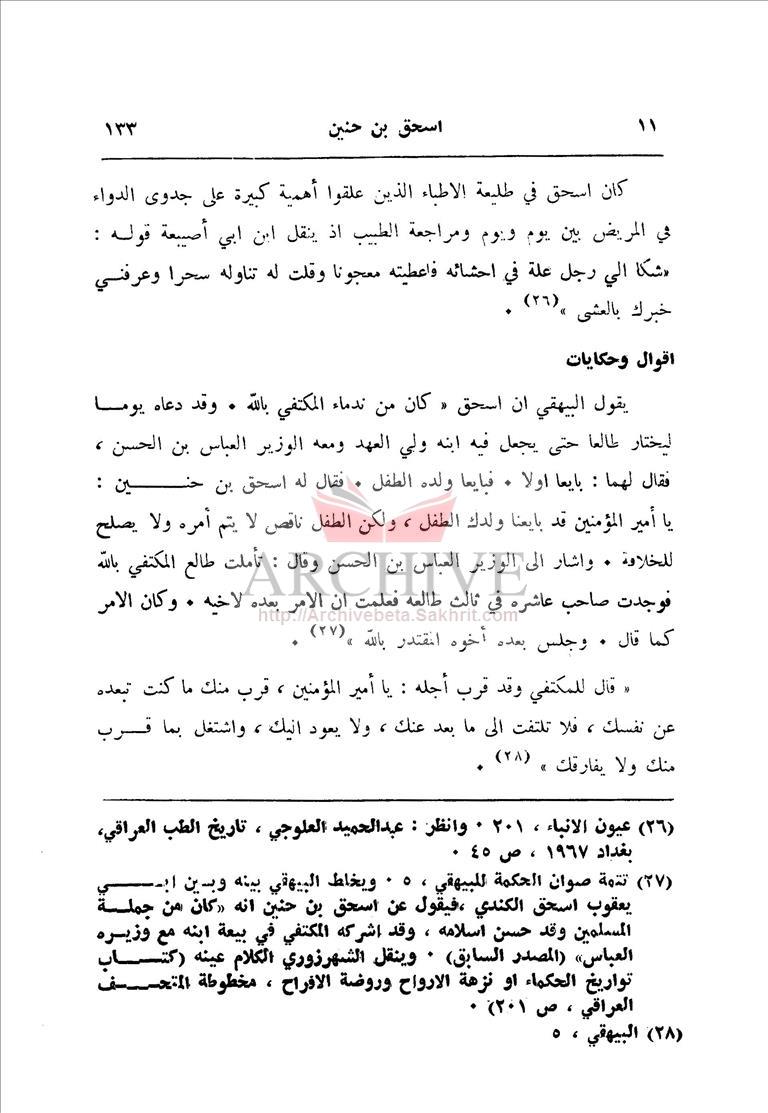 ١١ اسحق بن حنين ١٣٣
كان اسحق في طليعة الاطباء الذين علقوا أهمية كبيرة على جدوى الدواء
في المريض بين يوم ويوم ومراجعة الطبيب اذ ينقل ابن ابي أصيبعة قولـه :
«شكا الي رجل علة في احشائه فاعطيته معجونا وقلت له تناوله سحرا وعرفنـي
خبرك بالعشى »(٢٦) ٠
اقوال وحكايات
يقول البيهقي ان اسحق « كان من ندماء المكتفي بالله ٠ وقد دعاه يومـا
ليختار طالعا حتى يجعل فيه ابنه ولي العهد ومعه الوزير العباس بن الحسن ،
فقال لهما : بايعا اولا ٠ فبايعا ولده الطفل ٠ فقال له اسحق بن حنـين :
يا أمير المؤمنين قد بايعنا ولدك الطفل ، ولكن الطفل ناقص لا يتم أمره ولا يصلح
للخلافة ٠ واشار الى الوزير العباس بن الحسن وقال : تأملت طالع المكتفي بالله
فوجدت صاحب عاشره في ثالث طالعه فعلمت ان الامر بعده لاخيه ٠ وكان الامر
كما قال ٠ وجلس بعده أخوه المقتدر بالله »(٢٧) ٠
« قال للمكتفي وقد قرب أجله : يا أمير المؤمنين ، قرب منك ما كنت تبعده
عن نفسك ، فلا تلتفت الى ما بعد عنك ، ولا يعود اليك ، واشتغل بما قـرب
منك ولا يفارقك »(٢٨) ٠
(٢٦) عيون الانباء ، ٢٠١ ٠ وانظر : عبدالحميد العلوجي ، تاريخ الطب العراقي،
بغداد ١٩٦٧ ، ص ٤٥ ٠
(٢٧) تتمة صوان الحكمة للبيهقي ، ٥ ٠ ويخلط البيهقي بينه وبـين ابـي
يعقوب اسحق الكندي ،فيقول عن اسحق بن حنين انه «كان من جملـة
المسلمين وقد حسن اسلامه ، وقد اشركه المكتفي في بيعة ابنه مع وزيـره
العباس» (المصدر السابق) ٠ وينقل الشهرزوري الكلام عينه (كتـاب
تواريخ الحكماء او نزهة الارواح وروضة الافراح ، مخطوطة المتحـف
العراقي ، ص ٢٠١) ٠
(٢٨) البيهقي ، ٥
ARCHIVE
http://Archivebeta.Sakhrit.com